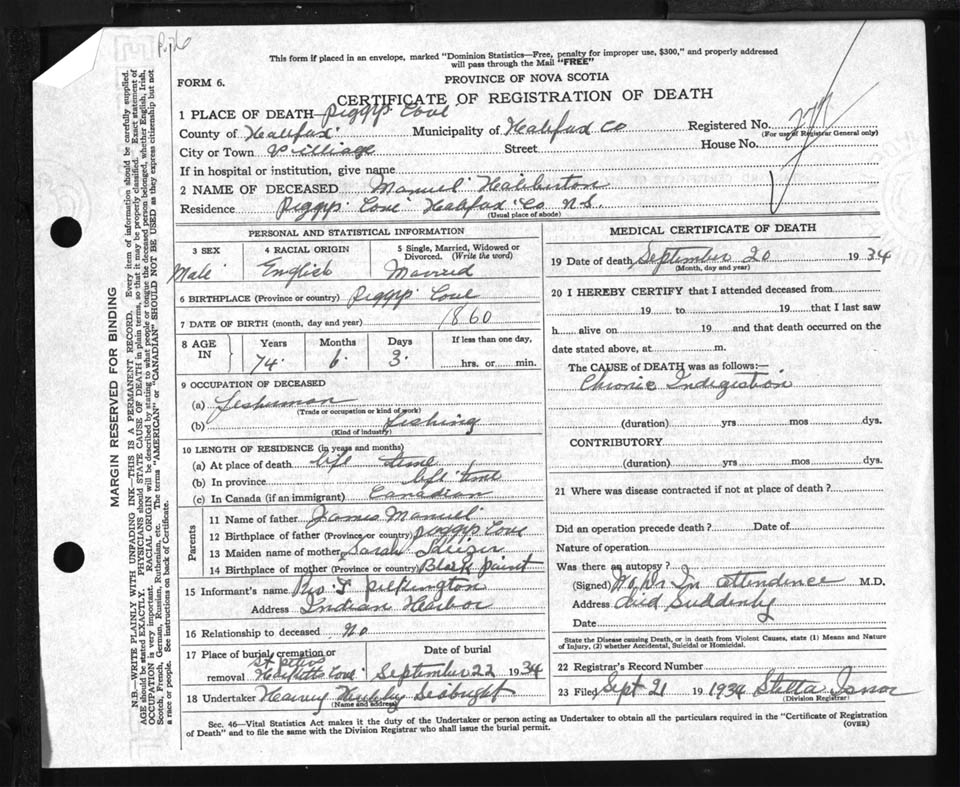 This form if placed in an envelope, marked "Dominion Statistics—Free, penalty for improper use, $300," and properly addressed
will pass through the Mail "FREE"
FORM 6.
PROVINCE OF NOVA SCOTIA
CERTIFICATE OF REGISTRATION OF DEATH
1 PLACE OF DEATH— Piggys Cove
County of Halifax Municipality of Halifax Co Registered No.
(For use of Registrar General only)
City or Town Villiage Street House No.
If in hospital or institution, give name
2 NAME OF DECEASED Manuel Haliburton
Residence Piggys Cove Halifax Co. N.S.
(Usual place of abode)
PERSONAL AND STATISTICAL INFORMATION
3 SEX 4 RACIAL ORIGIN 5 Single, Married, Widowed or
Divorced. (Write the word)
Male English Married
6 BIRTHPLACE (Province or country) Piggys Cove
7 DATE OF BIRTH (month, day and year) 1860
8 AGE IN Years Months Days If less than one day,
74 6 3 hrs. or min.
9 OCCUPATION OF DECEASED
(a) fisherman
(Trade or occupation or kind of work)
(b) fishing
(Kind of industry)
10 LENGTH OF RESIDENCE (in years and months)
(a) At place of death life time
(b) In province life time
(c) In Canada (if an immigrant) Canadian
Parents
11 Name of father James Manuel
12 Birthplace of father (Province or country) Poggys Cove
13 Maiden name of mother Sarah
14 Birthplace of mother (Province or country) Black paint
15 Informant's name Pilkington
Address Indian Harbor
16 Relationship to deceased No
17 Place of burial, cremation or Date of burial
removal St Peters Hacketts Cove September 22 1934
18 Undertaker Seabright
(Name and address)
MEDICAL CERTIFICATE OF DEATH
19 Date of death, September 20 1934
(Month, day and year)
20 I HEREBY CERTIFY that I attended deceased from
19 to 19 that I last saw
h alive on 19 and that death occurred on the
date stated above, at m.
The CAUSE of DEATH was as follows:—
Chronic Indigistion
(duration) yrs mos dys.
CONTRIBUTORY
(duration) yrs mos dys.
21 Where was disease contracted if not at place of death?
Did an operation precede death? Date of
Nature of operation
Was there an autopsy?
(Signed) No Dr In attendence M.D.
Address Died Suddenly
Date
State the Disease causing Death, or in death from Violent Causes, state (1) Means and Nature
of Injury, (2) whether Accidental, Suicidal or Homicidal.
22 Registrar's Record Number
23 Filed Sept 21 19 1934 Stella Isnor
(Division Registrar)
Sec. 46—Vital Statistics Act makes it the duty of the Undertaker or person acting as Undertaker to obtain all the particulars required in the "Certificate of Registration
of Death" and to file the same with the Division Registrar who shall issue the burial permit.
(OVER)
MARGIN RESERVED FOR BINDING
N.B.—WRITE PLAINLY WITH UNFADING INK—THIS IS A PERMANENT RECORD. Every item of information should be carefully supplied.
AGE should be stated EXACTLY. PHYSICIANS should STATE CAUSE OF DEATH in plain terms, so that it may be properly classified. Exact statement of
OCCUPATION is very important. RACIAL ORIGIN will be described by stating to what people or tongue the deceased person belonged, whether English, Irish,
Scotch, French, German, Russian, Ruthenian, etc. The terms "AMERICAN" or "CANADIAN" SHOULD NOT BE USED as they express citizenship but not
a race or people. See instructions on back of Certificate.